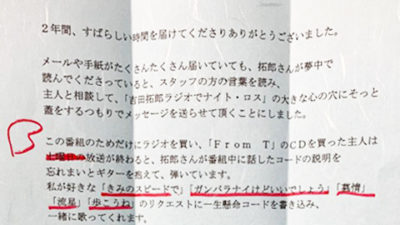 2年間、すばらしい時間を届けてくださりありがとうございました。
メールや手紙がたくさんたくさん届いていても、拓郎さんが夢中で
読んでくださっていると、スタッフの方の言葉を読み、
主人と相談して、「吉田拓郎ラジオでナイト・ロス」の大きな心の穴にそっと
蓋をするつもりでメッセージを送らせて頂くことにしました。
この番組のためだけにラジオを買い、「From T」のCDを買った主人は
土曜日の放送が終わると、拓郎さんが番組中に話したコードの説明を
忘れまいとギターを抱えて、弾いています。
私が好きな「きみのスピードで」「ガンバラナイけどいいでしょう」「慕情」
「流星」「歩こうね」のリクエストに一生懸命コードを書き込み、
一緒に歌ってくれます。